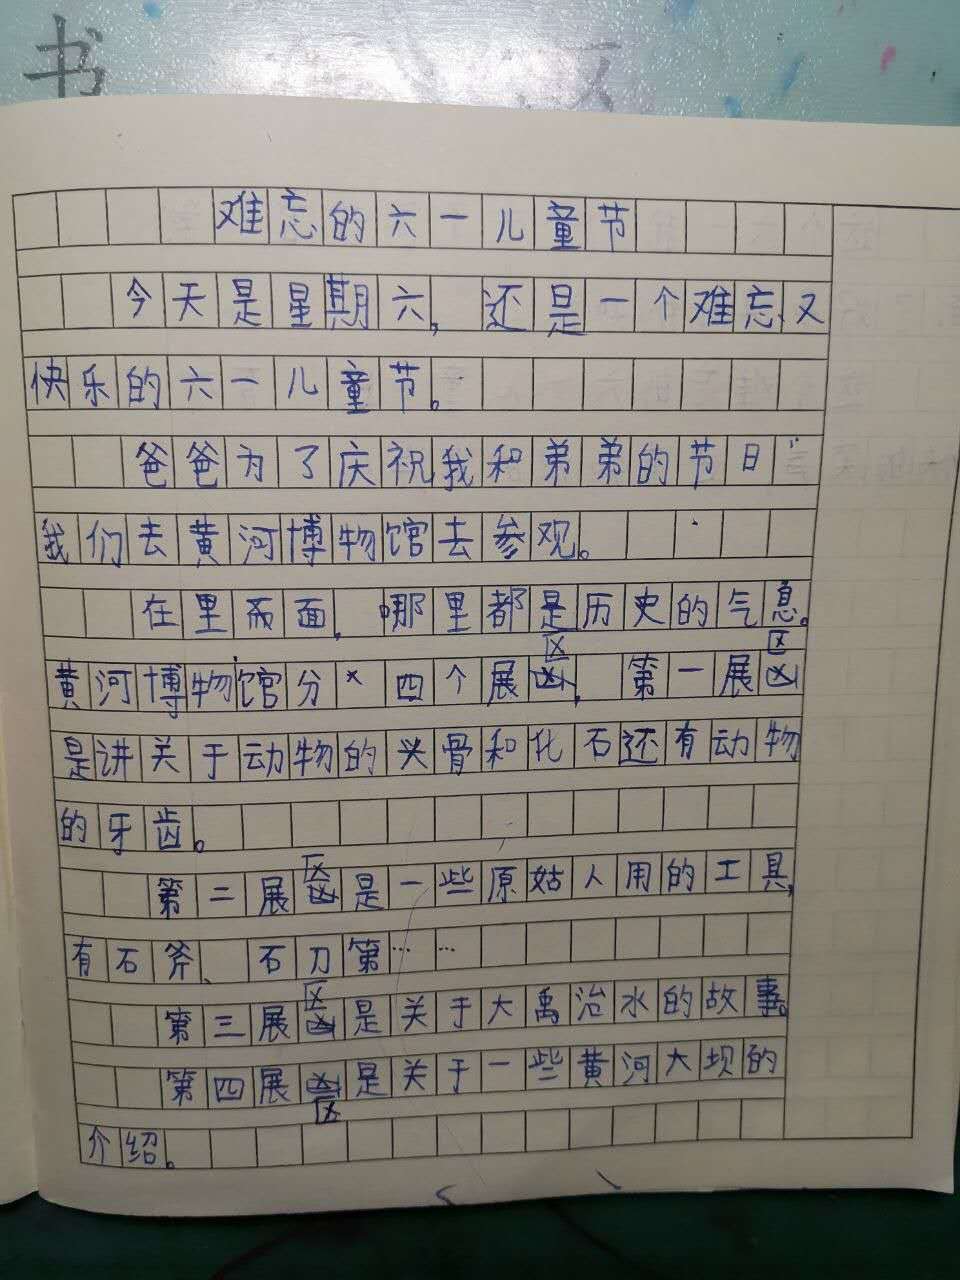 书
难忘的六一儿童节
今天是星期六，还是一个难忘又
快乐的六一儿童节。
爸爸为了庆祝我和弟弟的节日
我们去黄河博物馆去参观。
在里面，哪里都是历史的气息。
黄河博物馆分四个展区，第一展区
是讲关于动物的头骨和化石还有动物
的牙齿。
第二展区是一些原始人用的工具，
有石斧、石刀第……
第三展区是关于大禹治水的故事。
第四展区是关于一些黄河大坝的
介绍。